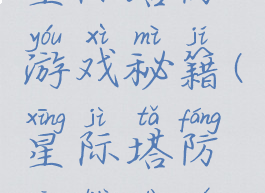 yóu xì mì jí
游戏秘籍(
xīng jì tǎ fáng
星际塔防